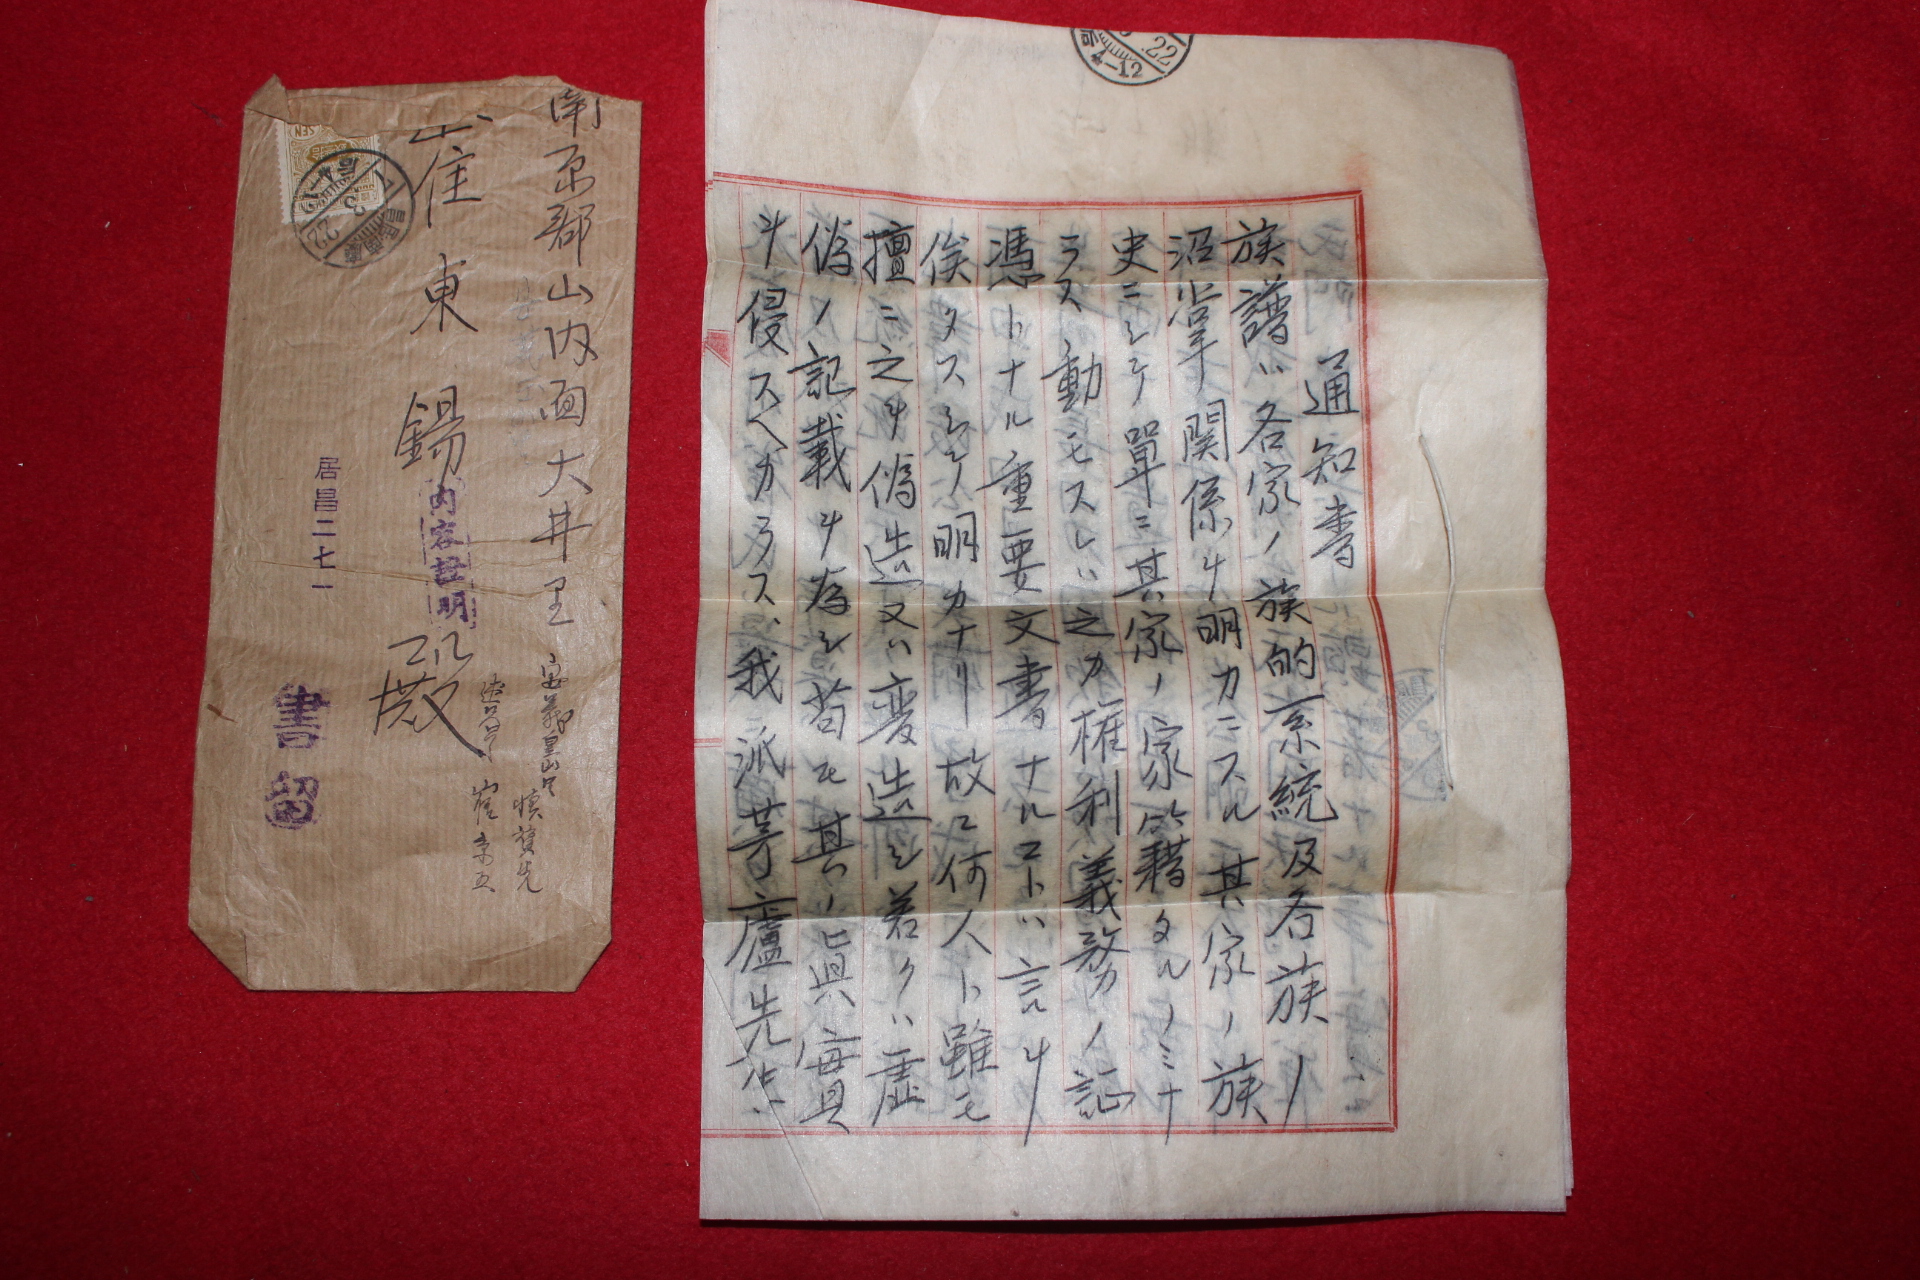 南原郡山内面大井里
崔東錫
殿
内容証明
居昌二七一
書留
SEN
22
4-12
通知書
族譜ハ各家ノ族的系統及各族ノ
沼掌関係ヲ明カニスル其家ノ族
史ニシテ單ニ其家ノ家籍タルノミナ
ラス動モスレハ之カ権利義務ノ証
憑トナル重要文書ナルコトハ言ヲ
俟タスシテ明カナリ故ニ何人ト雖モ
擅ニ之ヲ偽造又ハ変造シ若クハ虚
偽ノ記載ヲ為シ苟モ其ノ眞實
ヲ侵スヘカラス、我派等廬先生ハ